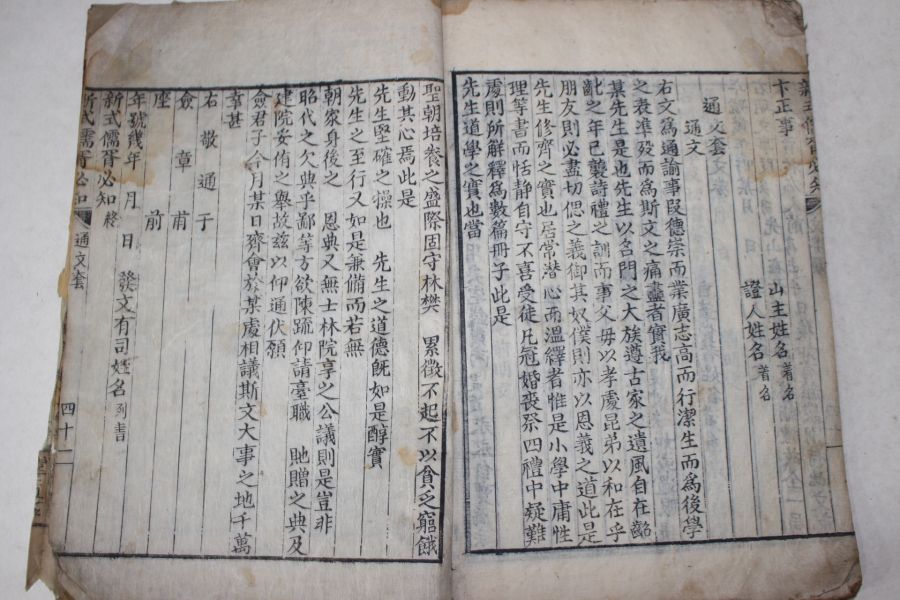 卞正事
山主姓名 着名
證人姓名 着名
通文套
通文
右文爲通諭事段德崇而業廣志高而行潔生而爲後學
之表準歿而爲斯文之痛盡者實我
某先生是也先生以名門之大族遵古家之遺風自在齠
齔之年已襲詩禮之訓而事父母以孝處昆弟以和在乎
朋友則必盡切偲之義御其奴僕則亦以恩義之道此是
先生修齊之實也居常潛心而溫繹者惟是小學中庸性
理等書而恬静自守不喜受徒凡冠婚喪祭四禮中疑難
處則所解釋爲數篇冊子此是
先生道學之實也當
聖朝培養之盛際固守林樊 累徵不起不以貧乏窮餓
動其心焉此是
先生堅確之操也 先生之道德旣如是醇實
先生之至行又如是兼備而若無
朝家身後之 恩典又無士林院享之公議則是豈非
昭代之欠典乎鄙等方欲陳疏仰請臺職 貤贈之典及
建院妥侑之擧故玆以仰通伏願
僉君子今月某日齊會於某處相議斯文大事之地千萬
幸甚
右敬通于
僉章甫
座前
年號幾年 月 日 發文有司姓名 列書
新式儒胥必知 終
新式儒胥必知 通文套 四十二